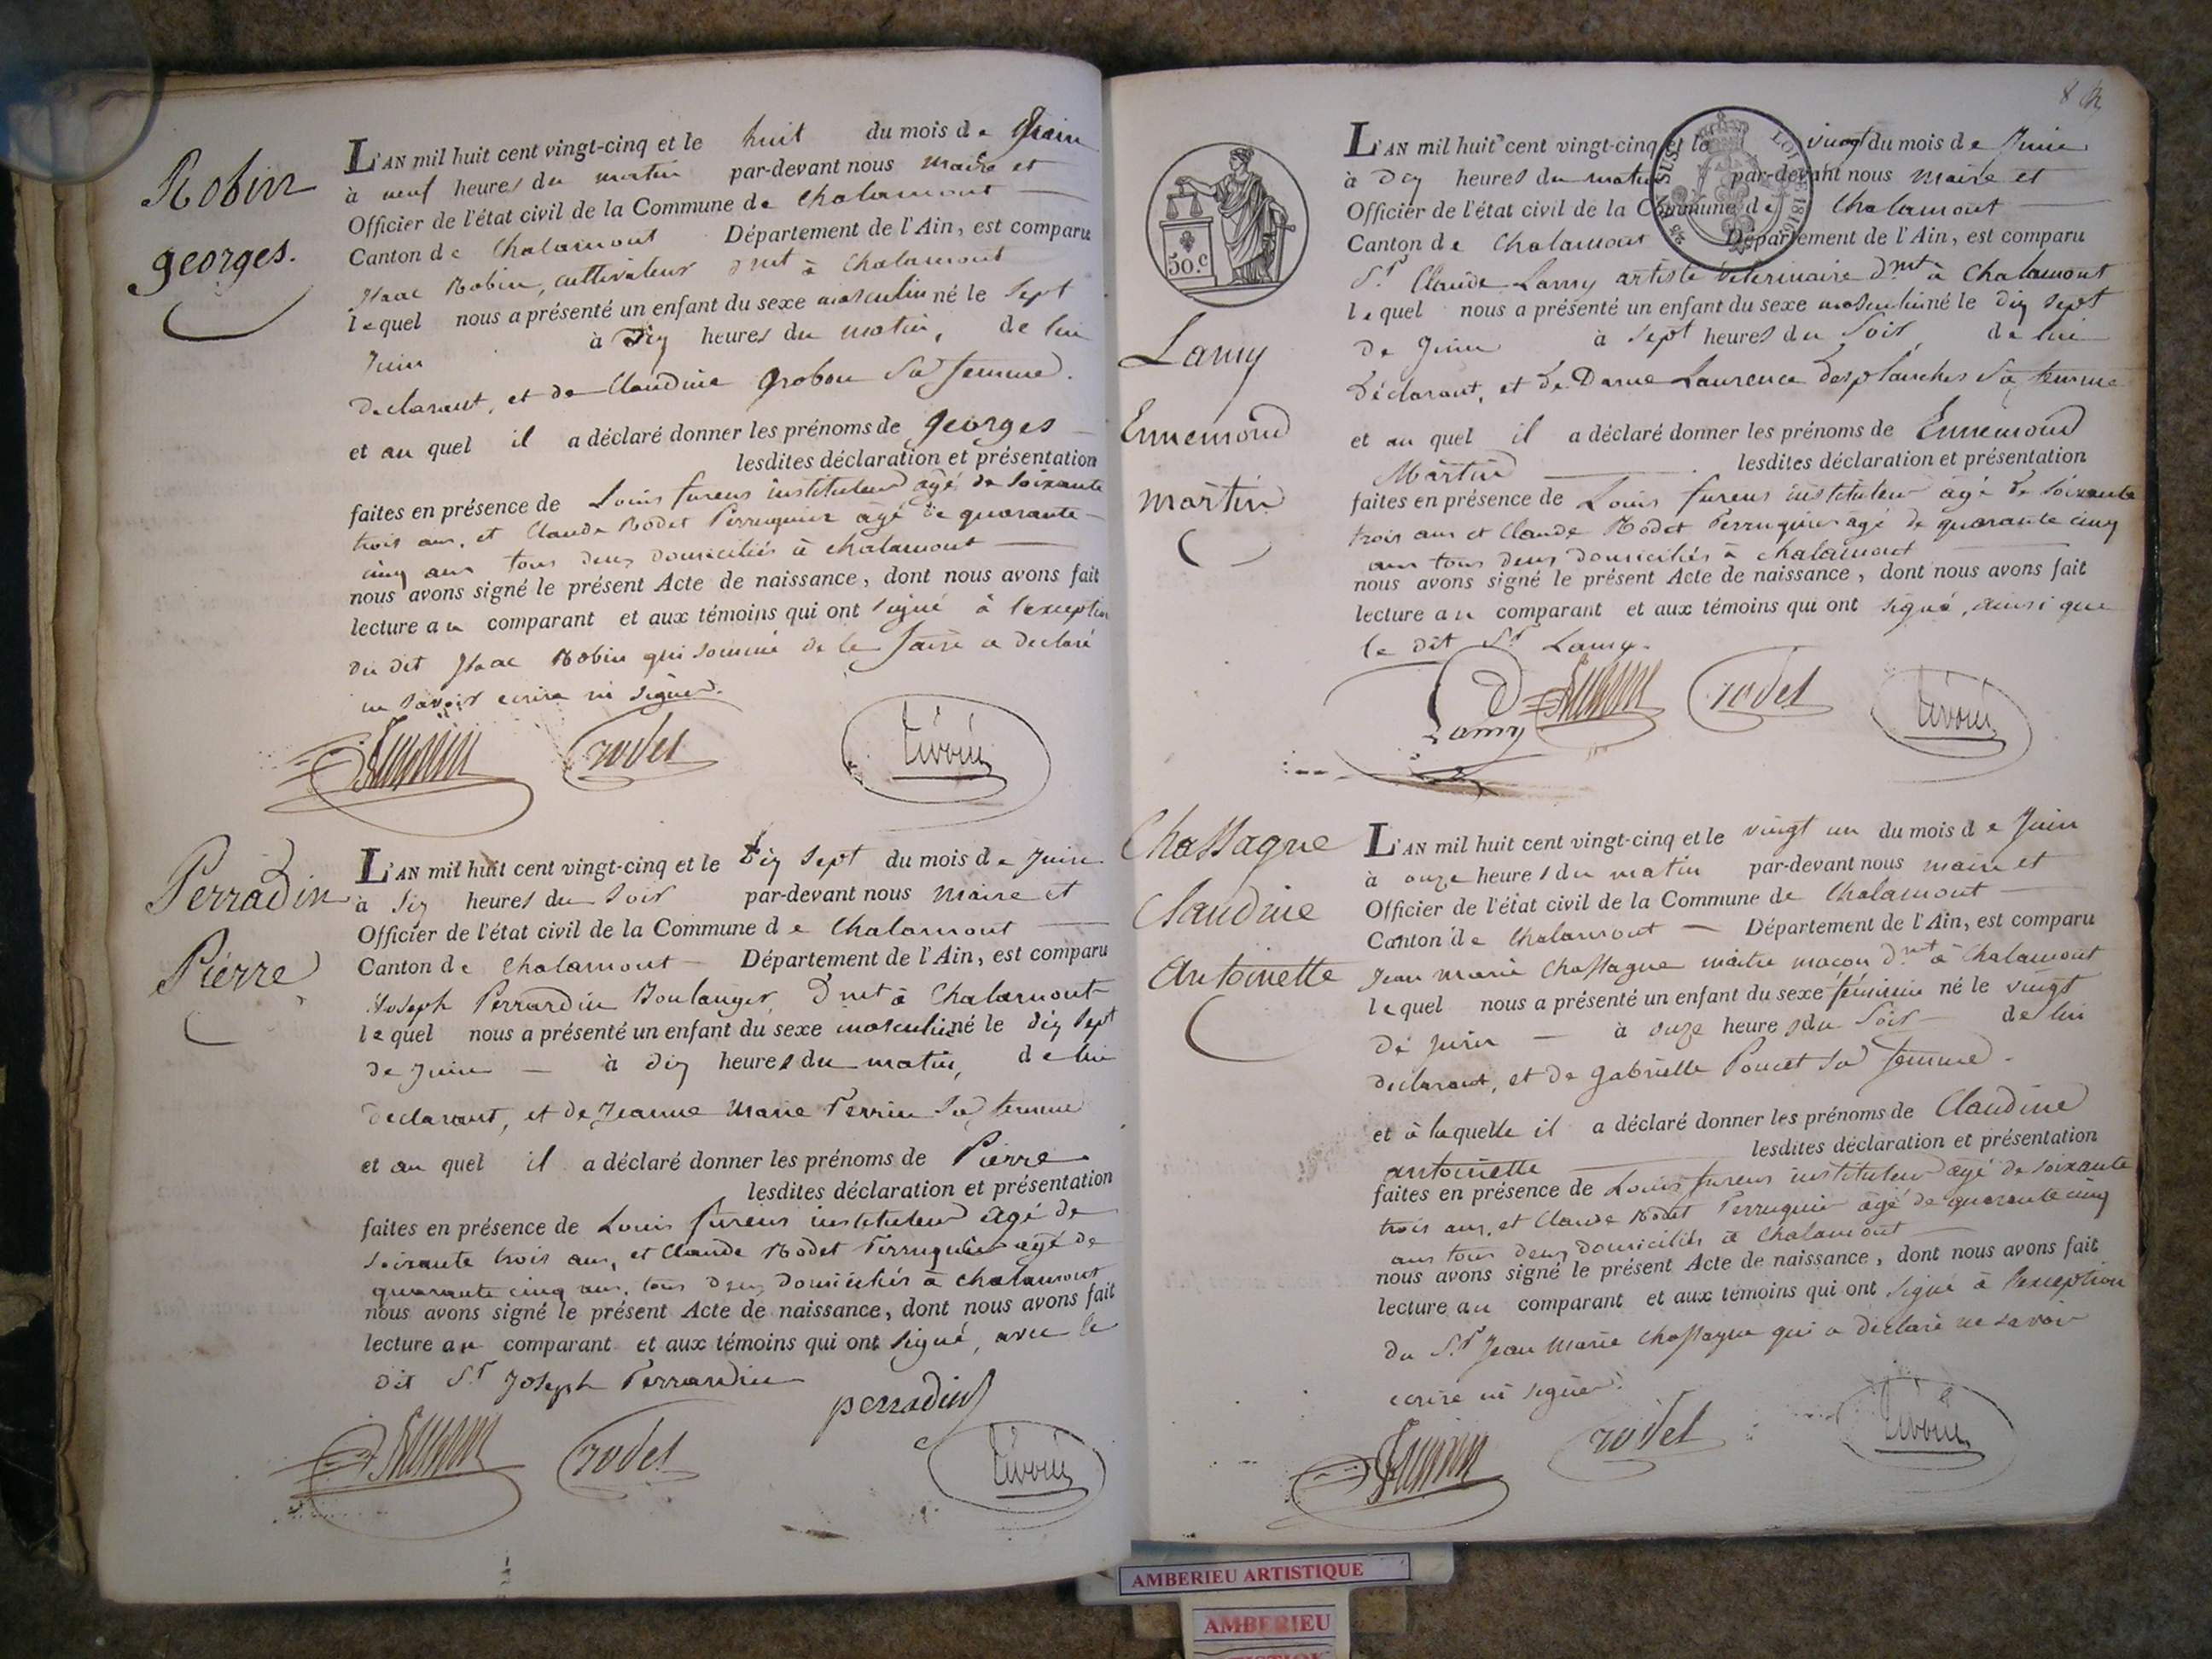 Robin
georges.
L'AN mil huit cent vingt-cinq et le huit du mois de Juin
à neuf heures du matin par-devant nous maire et
Officier de l'état civil de la Commune de Chalamont
Canton de Chalamont Département de l'Ain, est comparu
Isaac Robin, cultivateur dmt à Chalamont
lequel nous a présenté un enfant du sexe masculin né le sept
Juin à dix heures du matin, de lui
declarant, et de Claudine grobon sa femme.
et au quel il a déclaré donner les prénoms de georges
lesdites déclaration et présentation
faites en présence de Louis fureus instituteur agé de soixante
trois ans, et Claude Rodet Perruquier agé de quarante
cinq ans tous deux domiciliés à chalamont
nous avons signé le présent Acte de naissance, dont nous avons fait
lecture au comparant et aux témoins qui ont signé à l'exception
du dit Isaac Robin qui sommé de le faire a declaré
ne savoir ecrire ni signer.
rodet
Perradin
Pierre
L'AN mil huit cent vingt-cinq et le dix sept du mois de Juin
à six heures du soir par-devant nous maire et
Officier de l'état civil de la Commune de Chalamont
Canton de Chalamont Département de l'Ain, est comparu
Joseph Perrardin Boulanger, dmt à Chalamont
lequel nous a présenté un enfant du sexe masculin né le dix sept
de Juin à dix heures du matin, de lui
declarant, et de Jeanne Marie Perrin sa femme
et au quel il a déclaré donner les prénoms de Pierre
lesdites déclaration et présentation
faites en présence de Louis fureus instituteur agé de
soixante trois ans, et Claude Rodet Perruquier agé de
quarante cinq ans, tous deux domiciliés à chalamont
nous avons signé le présent Acte de naissance, dont nous avons fait
lecture au comparant et aux témoins qui ont signé, avec le
dit Sr Joseph Perrardin
perradin
rodet
50.c
Lamy
Ennemond
martin
L'AN mil huit cent vingt-cinq et le vingt du mois de Juin
à dix heures du matin par-devant nous maire et
Officier de l'état civil de la Commune de Chalamont
Canton de Chalamont Département de l'Ain, est comparu
Sr Claude Lamy artiste veterinaire dmt à Chalamont
lequel nous a présenté un enfant du sexe masculin né le dix sept
de Juin à sept heures du soir, de lui
déclarant, et de Dame Laurence desplanches sa femme
et au quel il a déclaré donner les prénoms de Ennemond
Martin lesdites déclaration et présentation
faites en présence de Louis fureus instituteur agé de soixante
trois ans et Claude Rodet Perruquier agé de quarante cinq
ans tous deux domiciliés à chalamont
nous avons signé le présent Acte de naissance, dont nous avons fait
lecture au comparant et aux témoins qui ont signé, ainsi que
le dit Sr Lamy.
Lamy
rodet
Chassagne
Claudine
Antoinette
L'AN mil huit cent vingt-cinq et le vingt un du mois de Juin
à onze heures du matin par-devant nous maire et
Officier de l'état civil de la Commune de Chalamont
Canton de Chalamont Département de l'Ain, est comparu
Jean marie Chassagne maitre macon dmt à Chalamont
lequel nous a présenté un enfant du sexe féminin né le vingt
de juin à onze heures du soir de lui
declarant, et de gabrielle Poncet sa femme.
et à laquelle il a déclaré donner les prénoms de Claudine
antoinette lesdites déclaration et présentation
faites en présence de Louis fureus instituteur agé de soixante
trois ans, et Claude Rodet Perruquier agé de quarante cinq
ans tous deux domiciliés à Chalamont
nous avons signé le présent Acte de naissance, dont nous avons fait
lecture au comparant et aux témoins qui ont signé à l'exception
du Sr Jean Marie Chassagne qui a declaré ne savoir
ecrire ni signer.
rodet
AMBERIEU ARTISTIQUE
AMBERIEU